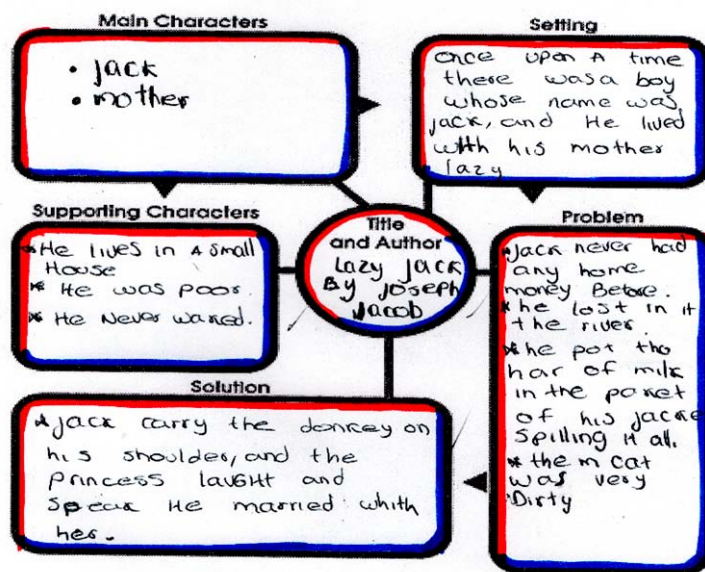 Main Characters
• jack
• mother
Setting
once upon A time
there was a boy
whose name was
jack, and He lived
with his mother
lazy
Supporting Characters
*He lives in A small
House
* He was poor.
* He Never warked.
Title
and Author
Lazy jack
By joseph
Jacob
Problem
*jack never had
any home
money Before.
*he lost in it
the river.
*he pot the
har of milk
in the paket
of his jacke
spilling it all.
* the m cat
was very
Dirty
Solution
*jack carry the donkey on
his shoulder, and the
princess laught and
speak He married whith
her.